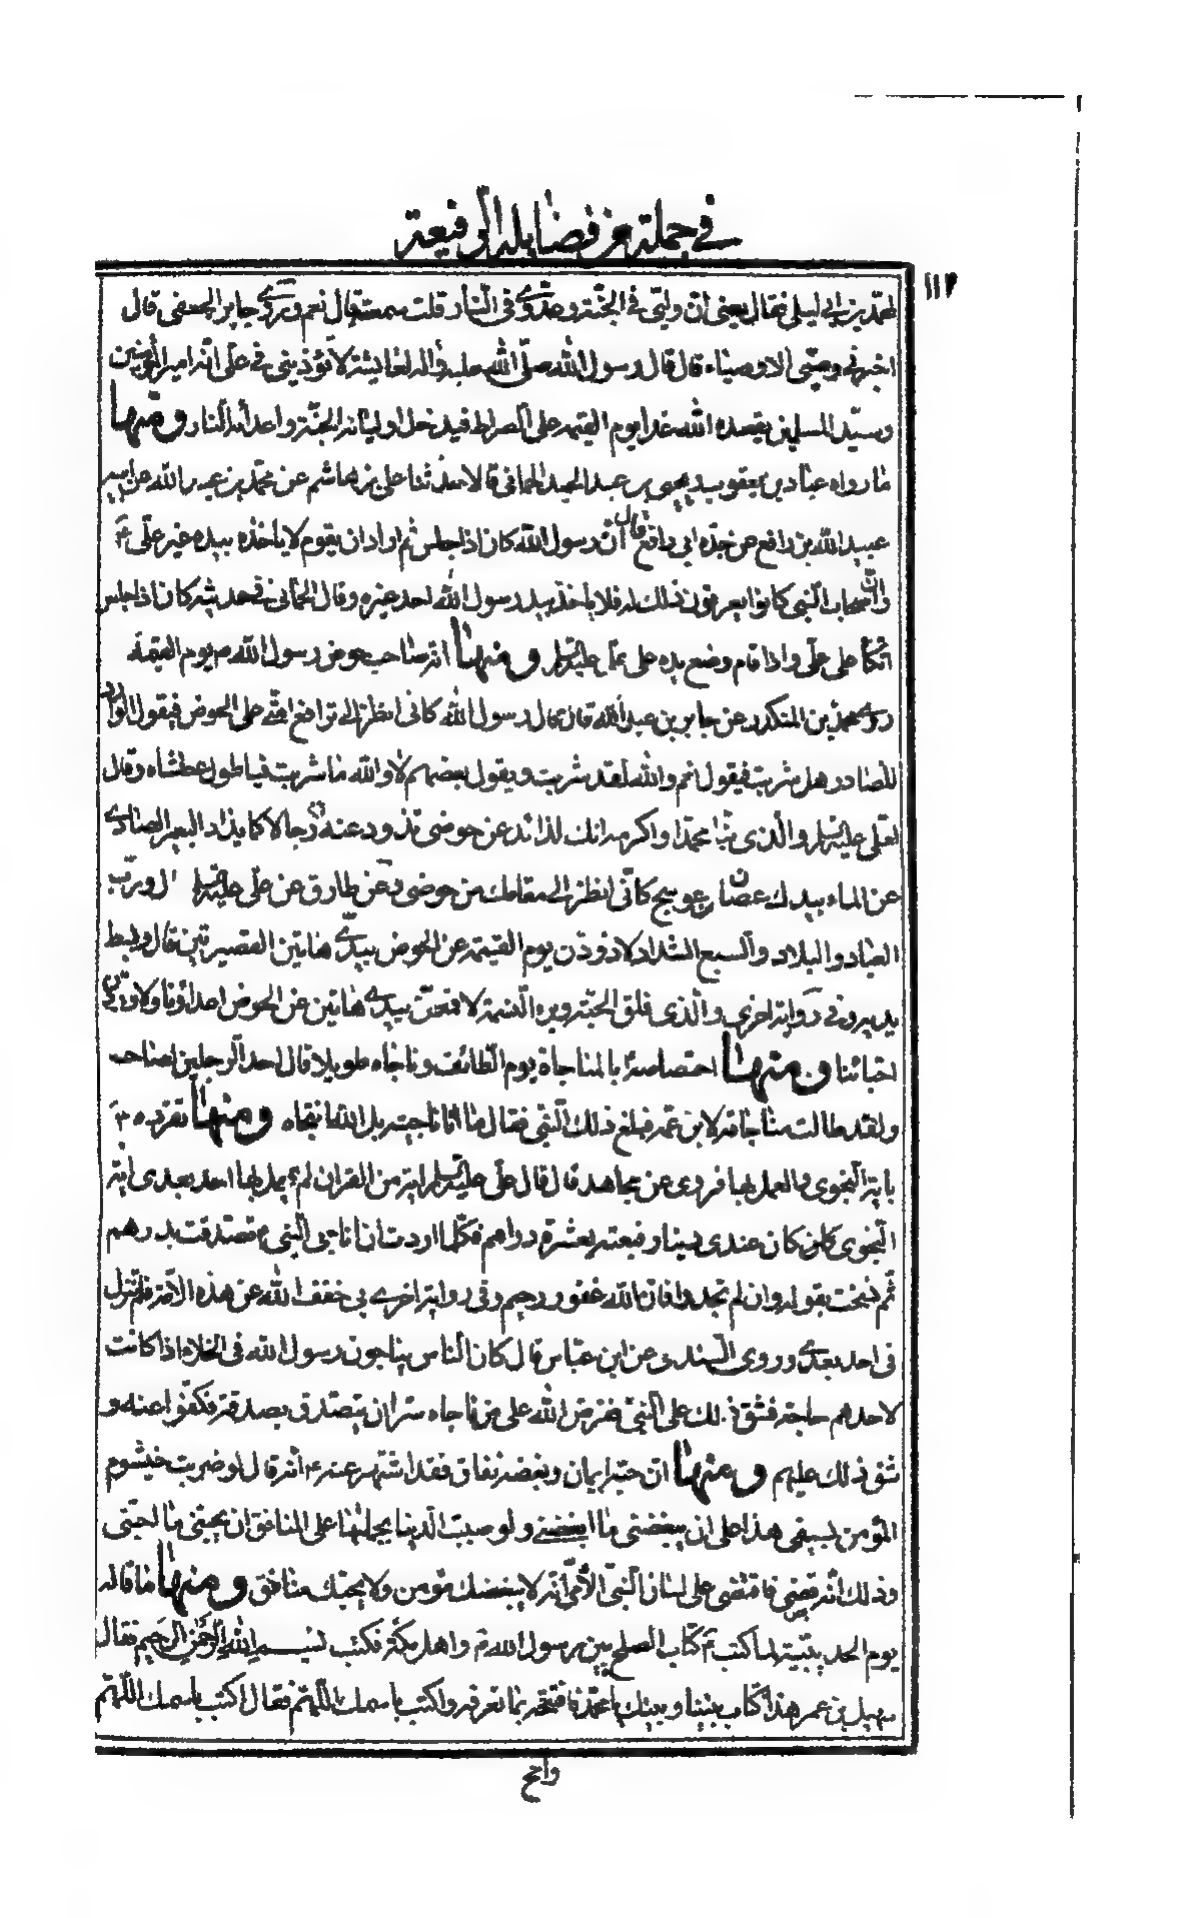 في جملة من فضايله الرفيعة
١١٣
لمحمد بن ابي ليلى فقال يعني ان وليي في الجنة وعدوي في النار قلت سمعته قال نعم وروى جابر الجعفي قال
اخبرني وصي الاوصياء قال قال رسول الله صلى الله عليه واله لعايشة لا تؤذيني في علي انه امير المؤمنين
وسيد المسلمين يقعده الله غدا يوم القيمة على الصراط فيدخل اوليائه الجنة واعدائه النار ومنها
ما رواه عباد بن يعقوب ويحيى بن عبد الحميد الحماني قالا حدثنا علي بن هاشم عن محمد بن عبيد الله عن ابيه
عبيد الله بن رافع عن جده ابي رافع قال ان رسول الله كان اذا جلس ثم اراد ان يقوم لا ياخذه بيده غير علي ع
وان اصحاب النبي كانوا يعرفون ذلك له فلا ياخذ بيد رسول الله احد غيره وقال الحماني في حديثه كان اذا جلس
اتكأ على علي واذا قام وضع يده على علي عليه السلم ومنها انه صاحب حوض رسول الله ص يوم القيمة
روى محمد بن المنكدر عن جابر بن عبد الله قال قال رسول الله كاني انظر الى تراضع امتي على الحوض فيقول الوارد
للصادر هل شربت فيقول نعم والله لقد شربت ويقول بعضهم لا والله ما شربت فيا طول عطشاه وقال
لعلي عليه السلم والذي نبأ محمدا واكرمه انك لذائد عن حوضي تذود عنه رجالا كما يذاد البعير الصادي
عن الماء بيدك عصا من عوسج كاني انظر الى مقامك من حوضي وعن طارق عن علي عليه السلم قال ورب
العباد والبلاد والسبع الشداد لاذودن يوم القيمة عن الحوض بيدي هاتين القصيرتين قال وبسط
يديه وفي رواية اخرى والذي فلق الحبة وبرء النسمة لاقمعن بيدي هاتين عن الحوض اعدائنا ولاوردن
احبائنا ومنها اختصاصه بالمناجاة يوم الطائف وناجاه طويلا قال احد الرجلين لصاحبه
ولقد طالت مناجاته لابن عمه فبلغ ذلك النبي فقال ما انا ناجيته بل الله انتجاه ومنها تفرده ع
باية النجوى والعمل بها فروى عن مجاهد قال قال علي عليه السلم اية من القران لم يعمل بها احد بعدي اية
النجوى كان عندي دينار فبعته بعشرة دراهم فكلما اردت ان اناجي النبي ص تصدقت بدرهم
ثم نسخت بقوله وان لم تجدوا فان الله غفور رحيم وفي رواية اخرى بي خفف الله عن هذه الامة فلم تنزل
في احد بعدي وروى السندي عن ابن عباس قال كان الناس يناجون رسول الله في الخلاء اذا كانت
لاحدهم حاجة فشق ذلك على النبي ففرض الله على من ناجاه سرا ان يتصدق بصدقة فكفوا عنه و
شق ذلك عليهم ومنها ان حبه ايمان وبغضه نفاق فقد اشتهر عنه ع انه قال لو ضربت خيشوم
المؤمن بسيفي هذا على ان يبغضني ما ابغضني ولو صببت الدنيا بجملتها على المنافق ان يحبني ما احبني
وذلك انه قضي فانقضى على لسان النبي الامي انه لا يبغضك مؤمن ولا يحبك منافق ومنها ما قاله
يوم الحديبية لما كتب ع كتاب الصلح بين رسول الله ص واهل مكة فكتب بسم الله الرحمن الرحيم فقال
سهيل بن عمر هذا كتاب بيننا وبينك يا محمد فافتحه بما نعرفه واكتب باسمك اللهم فقال اكتب باسمك اللهم
وامح